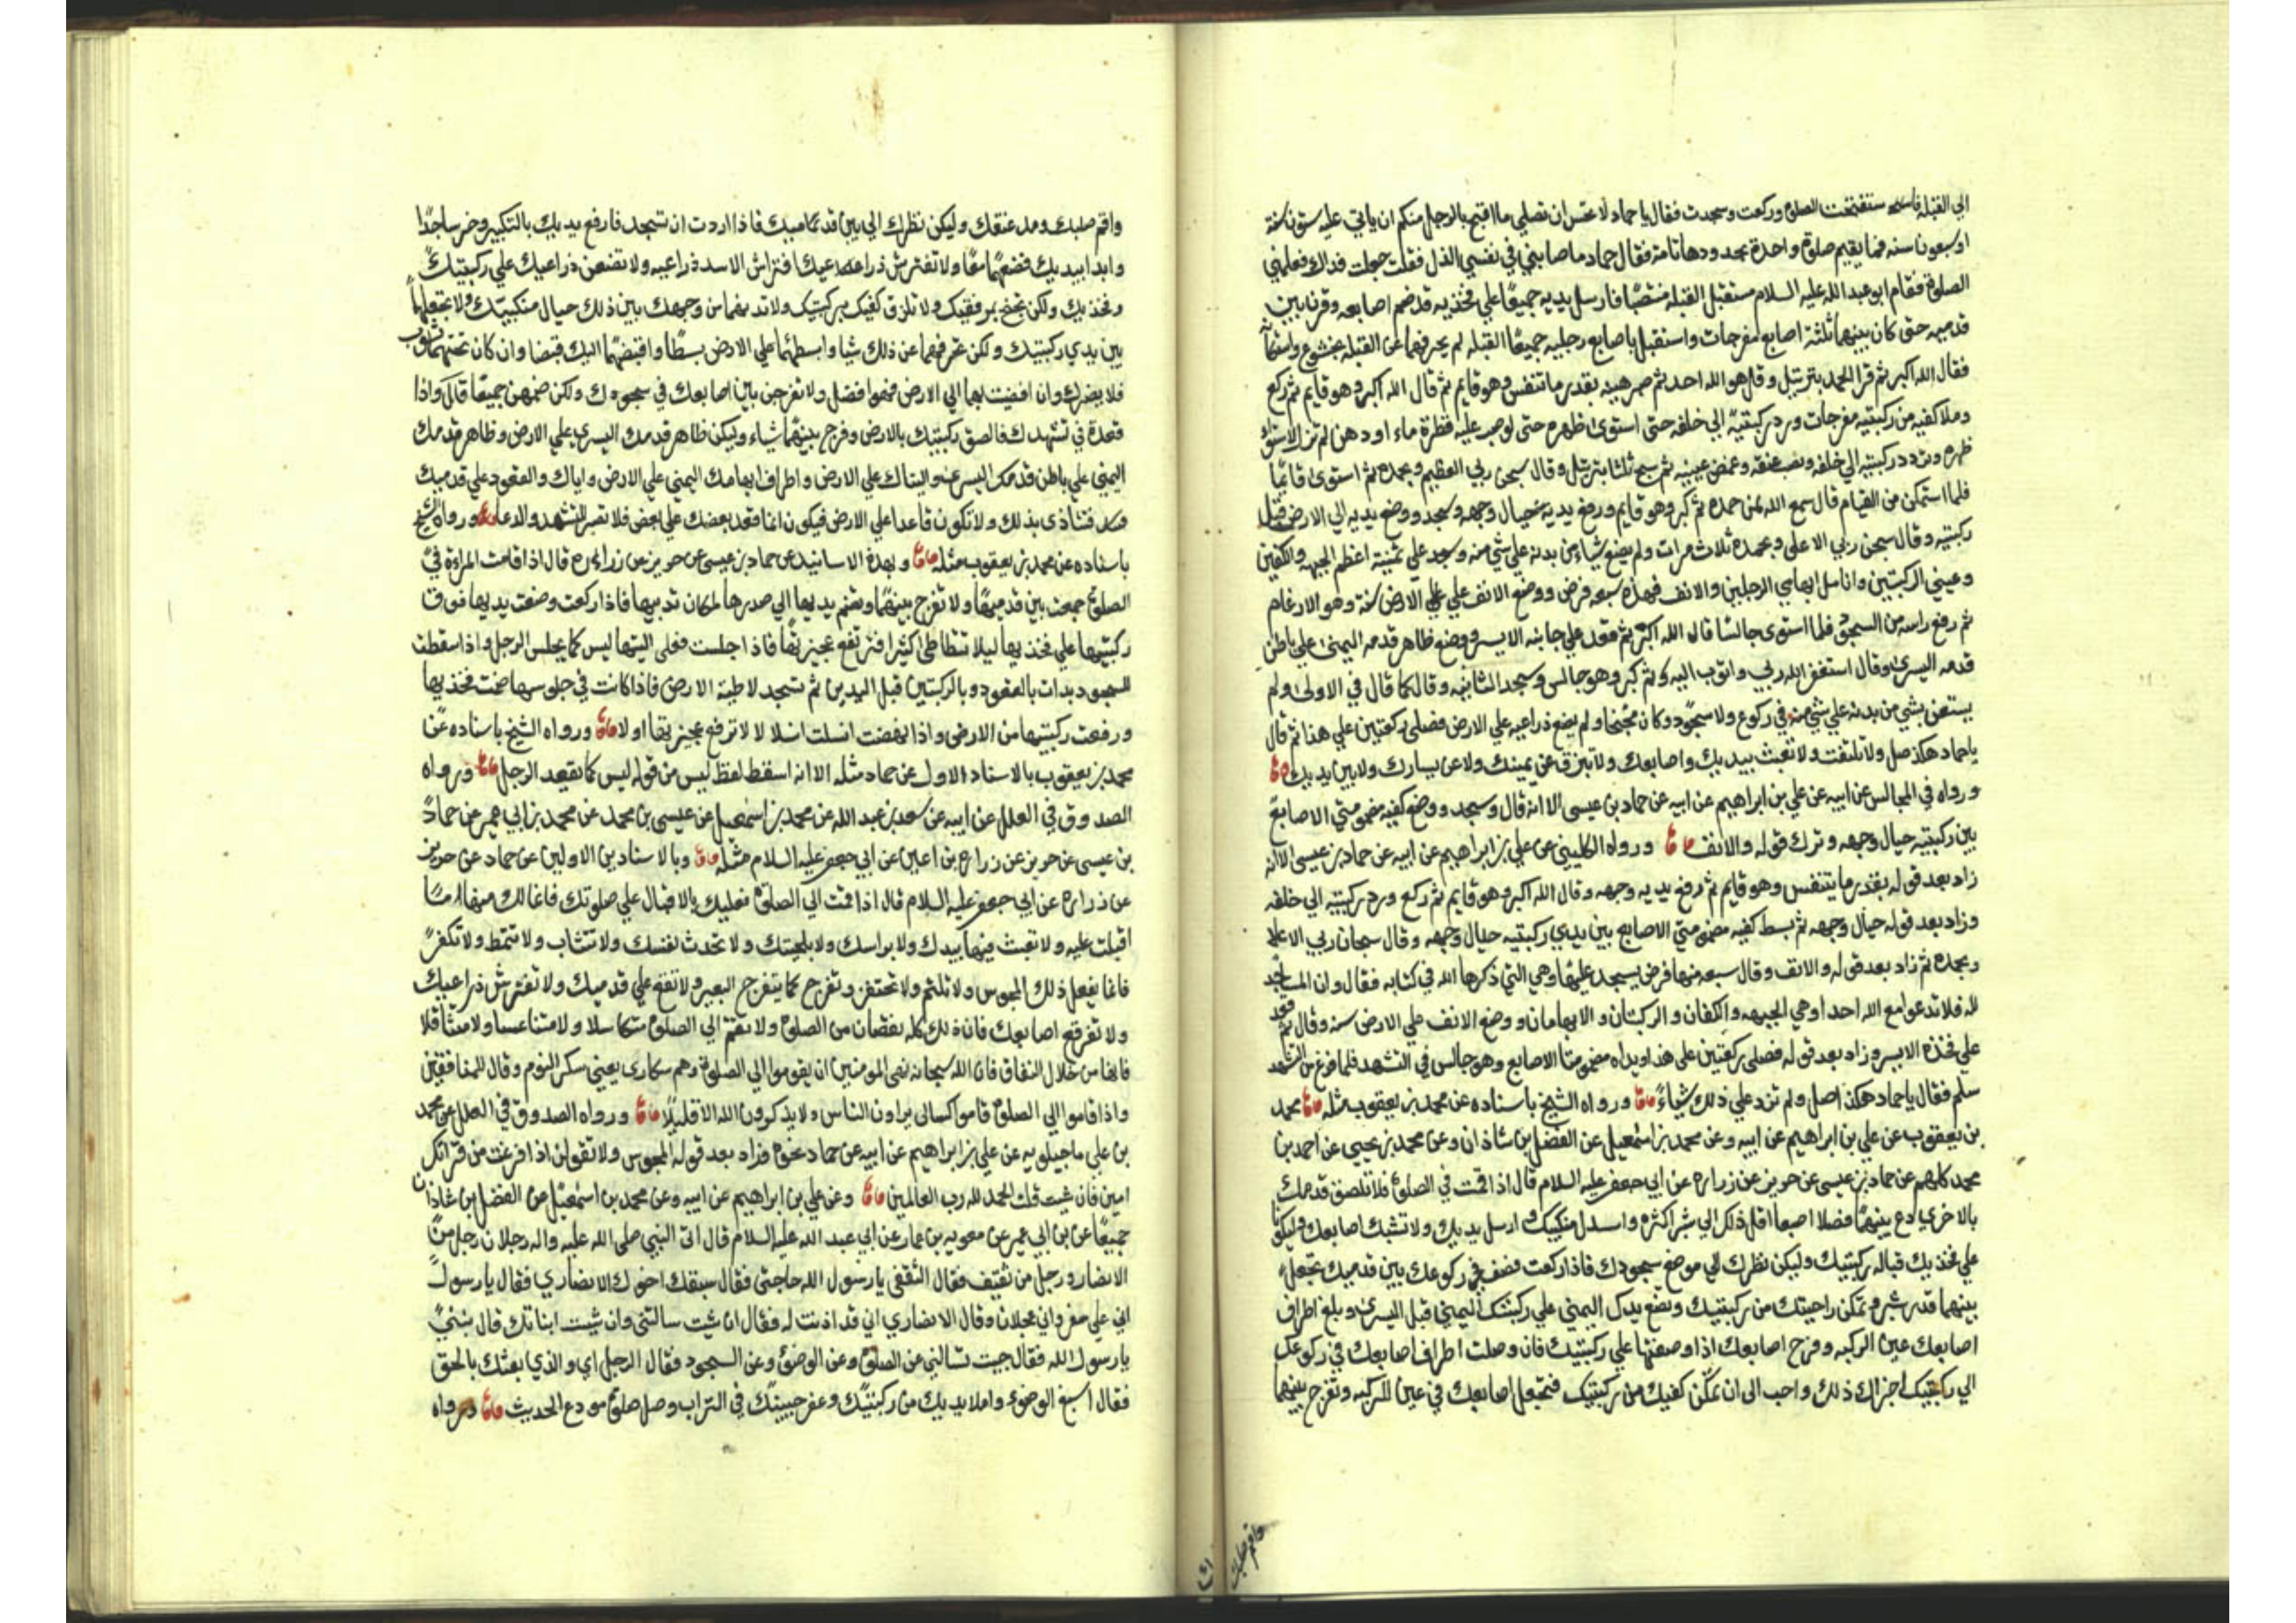 الى القبلة فاستفتحت الصلوة وركعت وسجدت فقال يا حماد لا تحسن ان تصلي ما اقبح بالرجل منكم ان ياتي عليه ستون سنة
او سبعون سنه فما يقيم صلوة واحدة بحدودها تامة فقال حماد فاصابني في نفسي الذل فقلت جعلت فداك فعلمني
الصلوة فقام ابو عبد الله عليه السلام مستقبل القبلة منتصبا فارسل يديه جميعا علي فخذيه قد ضم اصابعه وقرب بين
قدميه حتى كان بينهما ثلثة اصابع مفرجات واستقبل باصابع رجليه جميعا القبله لم يحرفهما عن القبلة بخشوع
فقال الله اكبر ثم قرا الحمد بترتيل وقل هو الله احد ثم صبر هنيه بقدر ما تنفس وهو قايم ثم قال الله اكبر وهو قايم ثم ركع
وملا كفيه من ركبتيه مفرجات ورد ركبتيه الي خلفه حتى استوى ظهره حتى لو صب عليه قطرة ماء او دهن لم تزل لاستواء
ظهره وتردد ركبتيه الي خلفه ونصب عنقه وغمض عينيه ثم سبح ثلثا بترتيل وقال سبحن ربي العظيم وبحمده ثم استوى قايما
فلما استمكن من القيام قال سمع الله لمن حمده ثم كبر وهو قايم ورفع يديه حيال وجهه وسجد ووضع يديه الي الارض قبل
ركبتيه وقال سبحن ربي الاعلى وبحمده ثلاث مرات ولم يضع شياء من بدنه علي شي منه وسجد علي ثمنية اعظم الجبهه والكفين
وعيني الركبتين وانامل ابهامي الرجلين والانف فهذه سبعه فرض ووضع الانف علي الارض سنة وهو الارغام
ثم رفع راسه من السجود فلما استوى جالسا قال الله اكبر ثم قعد علي جانبه الايسر ووضع ظاهر قدمه اليمنى علي باطن
قدمه اليسرى وقال استغفر الله ربي واتوب اليه ثم كبر وهو جالس وسجد الثانيه وقال كما قال في الاولى ولم
يستعن بشي من بدنه علي شي منه في ركوع ولا سجود وكان مجنحا ولم يضع ذراعيه علي الارض فصلى ركعتين علي هذا ثم قال
يا حماد هكذا صل ولا تلتفت ولا تعبث بيديك واصابعك ولا تبزق عن يمينك ولا عن يسارك ولا بين يديك
ورواه في المجالس عن ابيه عن علي بن ابراهيم عن ابيه عن حماد بن عيسى الا انه قال وسجد ووضع كفيه مضمومتي الاصابع
بين ركبتيه حيال وجهه وترك قوله والانف ورواه الكليني عن علي بن ابراهيم عن ابيه عن حماد بن عيسى الا انه
زاد بعد قوله بقدر ما يتنفس وهو قايم ثم رفع يديه وجهه وقال الله اكبر وهو قايم ثم ركع ورد ركبتيه الي خلفه
وزاد بعد قوله حيال وجهه ثم بسط كفيه مضمومتي الاصابع بين يدي ركبتيه حيال وجهه وقال سبحان ربي الاعلا
وبحمده ثم زاد بعد قوله والانف وقال سبعه منها فرض يسجد عليها وهي التي ذكرها الله في كتابه فقال وان المساجد
لله فلا تدعوا مع الله احدا وهي الجبهه والكفان والركبتان والابهامان ووضع الانف علي الارض سنه وقال ثم قعد
علي فخذه الايسر وزاد بعد قوله فصلى ركعتين على هذا ويداه مضمومتا الاصابع وهو جالس في التشهد فلما فرغ من التشهد
سلم فقال يا حماد هكذا صل ولم تزد علي ذلك شياء ورواه الشيخ باسناده عن محمد بن يعقوب مثله محمد
بن يعقوب عن علي بن ابراهيم عن ابيه وعن محمد بن اسمعيل عن الفضل بن شاذان وعن محمد بن يحيى عن احمد بن
محمد كلهم عن حماد بن عيسى عن حريز عن زراره عن ابي جعفر عليه السلام قال اذا قمت في الصلوة فلا تلصق قدمك
بالاخرى دع بينهما فصلا اصبعا اقل ذلك الي شبر اكثره واسدل منكبيك وارسل يديك ولا تشبك اصابعك وليكونا
علي فخذيك قباله ركبتيك وليكن نظرك الي موضع سجودك فاذا ركعت فصف في ركوعك بين قدميك تجعل
بينهما قدر شبر وتمكن راحيتك من ركبتيك وتضع يدك اليمني علي ركبتك اليمني قبل اليسرى وبلغ اطراف
اصابعك عين الركبه وفرج اصابعك اذا وضعتها علي ركبتيك فان وصلت اطراف اصابعك في ركوعك
الي ركبتيك اجزاك ذلك واحب الى ان تمكن كفيك من ركبتيك فتجعل اصابعك في عين الركبه وتفرج بينهما
واقم صلبك
واقم صلبك ومد عنقك وليكن نظرك الي بين قدميك فاذا اردت ان تسجد فارفع يديك بالتكبير وخر ساجدا
وابدا بيديك فضعهما معا ولا تفترش ذراعيك افتراش الاسد ذراعيه ولا تضعن ذراعيك علي ركبتيك
وفخذيك ولكن تجنح بمرفقيك ولا تلزق كفيك بركبتيك ولا تدنهما من وجهك بين ذلك حيال منكبيك ولا تجعلهما
بين يدي ركبتيك ولكن تحرفهما عن ذلك شيا وابسطهما علي الارض بسطا واقبضهما اليك قبضا وان كان تحتهما ثوب
فلا يضرك وان افضيت بهما الي الارض فهو افضل ولا تفرجن بين اصابعك في سجودك ولكن ضمهن جميعا قال واذا
قعدة في تشهدك فالصق ركبتيك بالارض وفرج بينهما شياء وليكن ظاهر قدمك اليسرى علي الارض وظاهر قدمك
اليمني علي باطن قدمك اليسرى واليتاك علي الارض واطراف ابهامك اليمني علي الارض واياك والقعود علي قدميك
فتتاذى بذلك ولا تكون قاعدا علي الارض فيكون انما قعد بعضك علي بعض فلا تصبر للتشهد والدعا ورواه الشيخ
باسناده عن محمد بن يعقوب مثله وبهذه الاسانيد عن حماد بن عيسى عن حريز عن زراره قال اذا قامت المراءة في
الصلوة جمعت بين قدميها ولا تفرج بينهما وتضم يديها الي صدرها لمكان ثدييها فاذا ركعت وضعت يديها فوق
ركبتيها علي فخذيها ليلا تتطاطئ كثيرا فترتفع عجيزتها فاذا جلست فعلى اليتيها ليس كما يجلس الرجل واذا سقطت
للسجود بدات بالقعود وبالركبتين قبل اليدين ثم تسجد لاطية الارض فاذا كانت في جلوسها ضمت فخذيها
ورفعت ركبتيها من الارض واذا نهضت انسلت انسلالا لا ترفع عجيزتها اولا ورواه الشيخ باسناده عن
محمد بن يعقوب بالاسناد الاول عن حماد مثله الا انه اسقط لفظ ليس من قوله ليس كما يقعد الرجل ورواه
الصدوق في العلل عن ابيه عن سعد بن عبد الله عن محمد بن اسمعيل عن عيسى بن محمد عن محمد بن ابي عمير عن حماد
بن عيسى عن حريز عن زرارة بن اعين عن ابي جعفر عليه السلام مثله وبالاسنادين الاولين عن حماد عن حريز
عن زراره عن ابي جعفر عليه السلام قال اذا قمت الي الصلوة فعليك بالاقبال علي صلوتك فانما لك منها ما
اقبلت عليه ولا تعبث فيها بيدك ولا براسك ولا بلحيتك ولا تحدث نفسك ولا تتثاب ولا تتمط ولا تكفر
فانما يفعل ذلك المجوس ولا تلثم ولا تحتفز وتفرج كما يتفرج البعير ولا تقع علي قدميك ولا تفترش ذراعيك
ولا تفرقع اصابعك فان ذلك كله نقصان من الصلوة ولا تقم الي الصلوة متكاسلا ولا متناعسا ولا متثاقلا
فانها من خلال النفاق فان الله سبحانه نهى المومنين ان يقوموا الي الصلوة وهم سكارى يعني سكر النوم وقال للمنافقين
واذا قاموا الي الصلوة قاموا كسالى يراون الناس ولا يذكرون الله الا قليلا ورواه الصدوق في العلل عن محمد
بن علي ماجيلويه عن علي بن ابراهيم عن ابيه عن حماد نحوه وزاد بعد قوله المجوس ولا تقولن اذا فرغت من قرائتك
امين فان شيت قلت الحمد لله رب العالمين وعن علي بن ابراهيم عن ابيه وعن محمد بن اسمعيل عن الفضل بن شاذان
جميعا عن بن ابي عمير عن معويه بن عمار عن ابي عبد الله عليه السلام قال اتى النبي صلى الله عليه واله رجلان رجل من
الانصار ورجل من ثقيف فقال الثقفي يا رسول الله حاجتى فقال سبقك اخوك الانصاري فقال يا رسول
اني علي سفر واني عجلان وقال الانصاري اني قد اذنت له فقال ان شيت سالتنى وان شيت انباتك قال نبئني
يا رسول الله فقال جيت تسالني عن الصلوة وعن الوضوء وعن السجود فقال الرجل اي والذي بعثك بالحق
فقال اسبغ الوضوء واملا يديك من ركبتيك وعفر جبينك في التراب وصل صلوة مودع الحديث ورواه